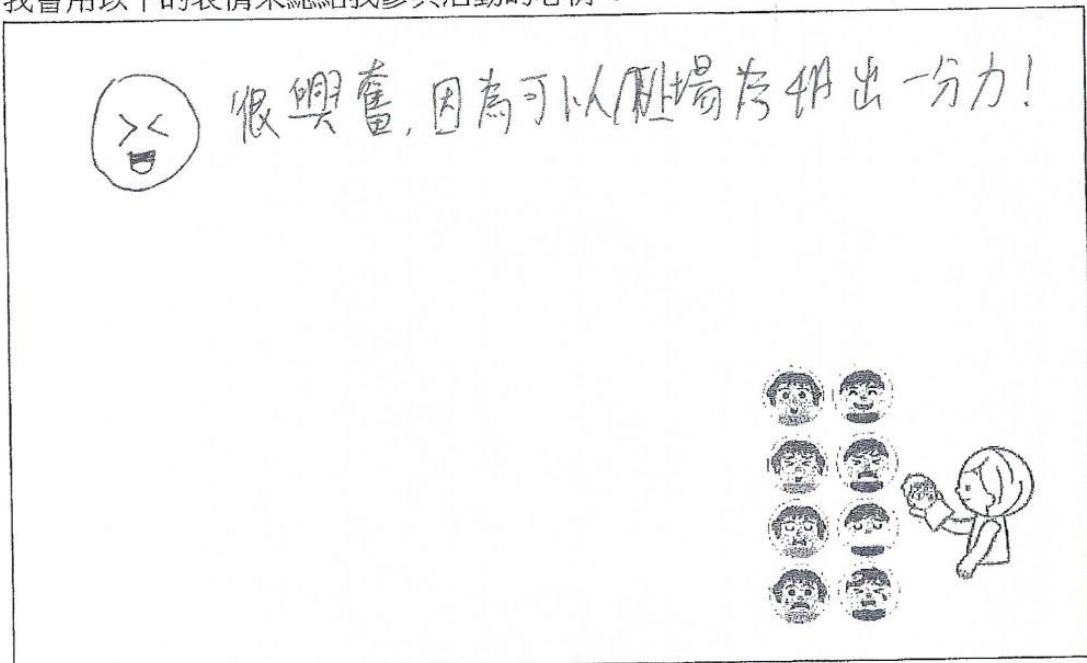 我會用以下的表情來總結我參與活動的心情
很興奮,因為可以離場為班出一分力!